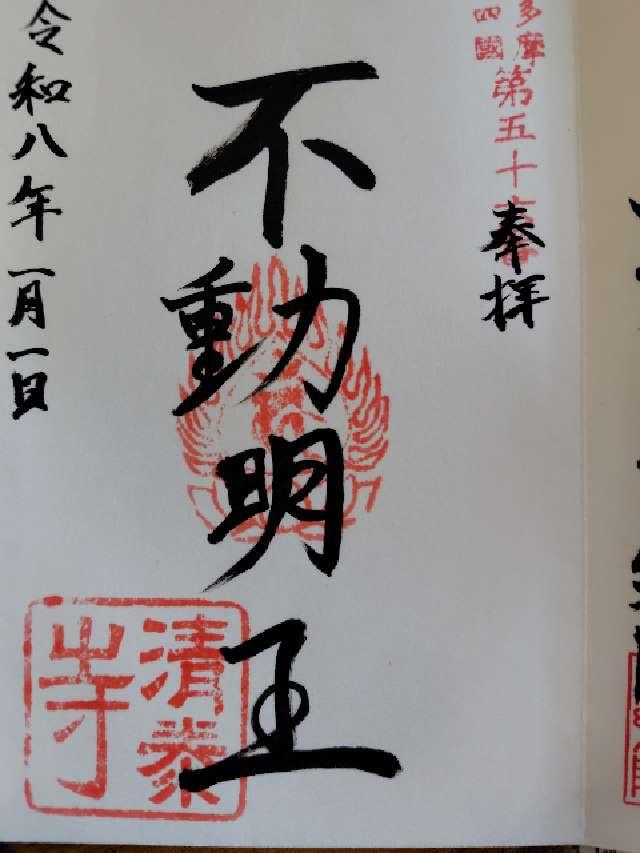 多摩
四國
第五十
奉拝
不動明王
令和八年一月一日
清泰
寺